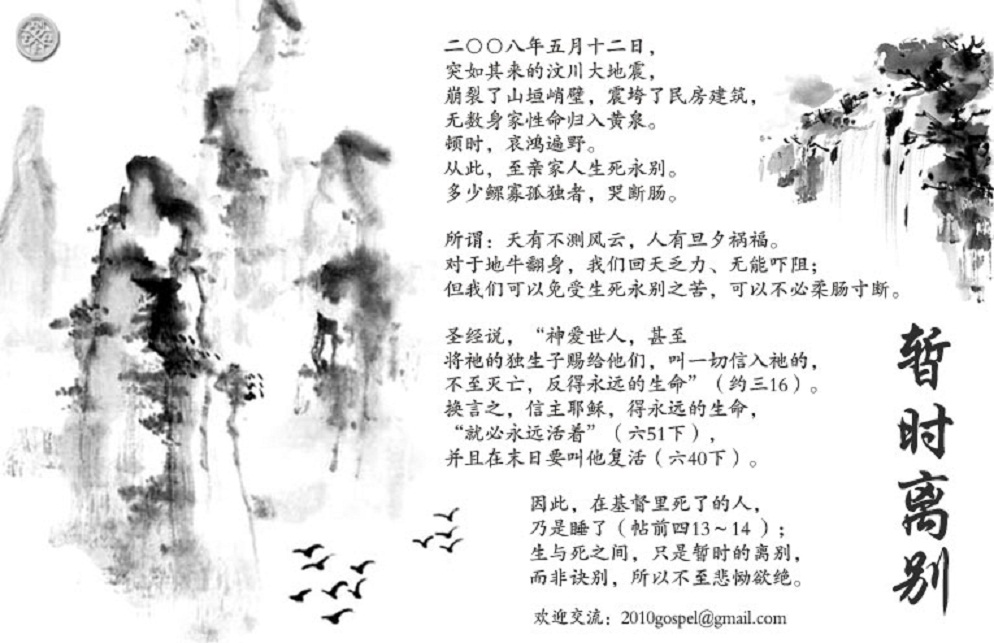 二〇〇八年五月十二日，
突如其来的汶川大地震，
崩裂了山垣峭壁，震垮了民房建筑，
无数身家性命归入黄泉。
顿时，哀鸿遍野。
从此，至亲家人生死永别。
多少鳏寡孤独者，哭断肠。
所谓：天有不测风云，人有旦夕祸福。
对于地牛翻身，我们回天乏力、无能吓阻；
但我们可以免受生死永别之苦，可以不必柔肠寸断。
圣经说，“神爱世人，甚至
将祂的独生子赐给他们，叫一切信入祂的，
不至灭亡，反得永远的生命”（约三16）。
换言之，信主耶稣，得永远的生命，
“就必永远活着”（六51下），
并且在末日要叫他复活（六40下）。
因此，在基督里死了的人，
乃是睡了（帖前四13～14）；
生与死之间，只是暂时的离别，
而非诀别，所以不至悲恸欲绝。
欢迎交流：2010gospel@gmail.com
暂时离别